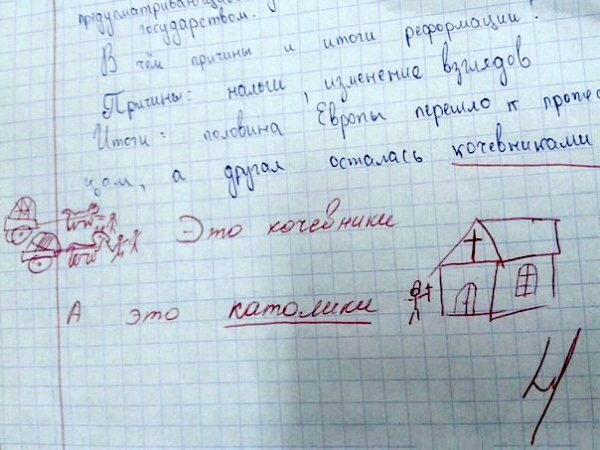 предусматривающие
государством.
В чём причины и итоги реформации?
Причины: налоги, изменение взглядов
Итоги: половина Европы перешло к протес
цом, а другая осталась кочевниками
Это кочевники
А это католики
4